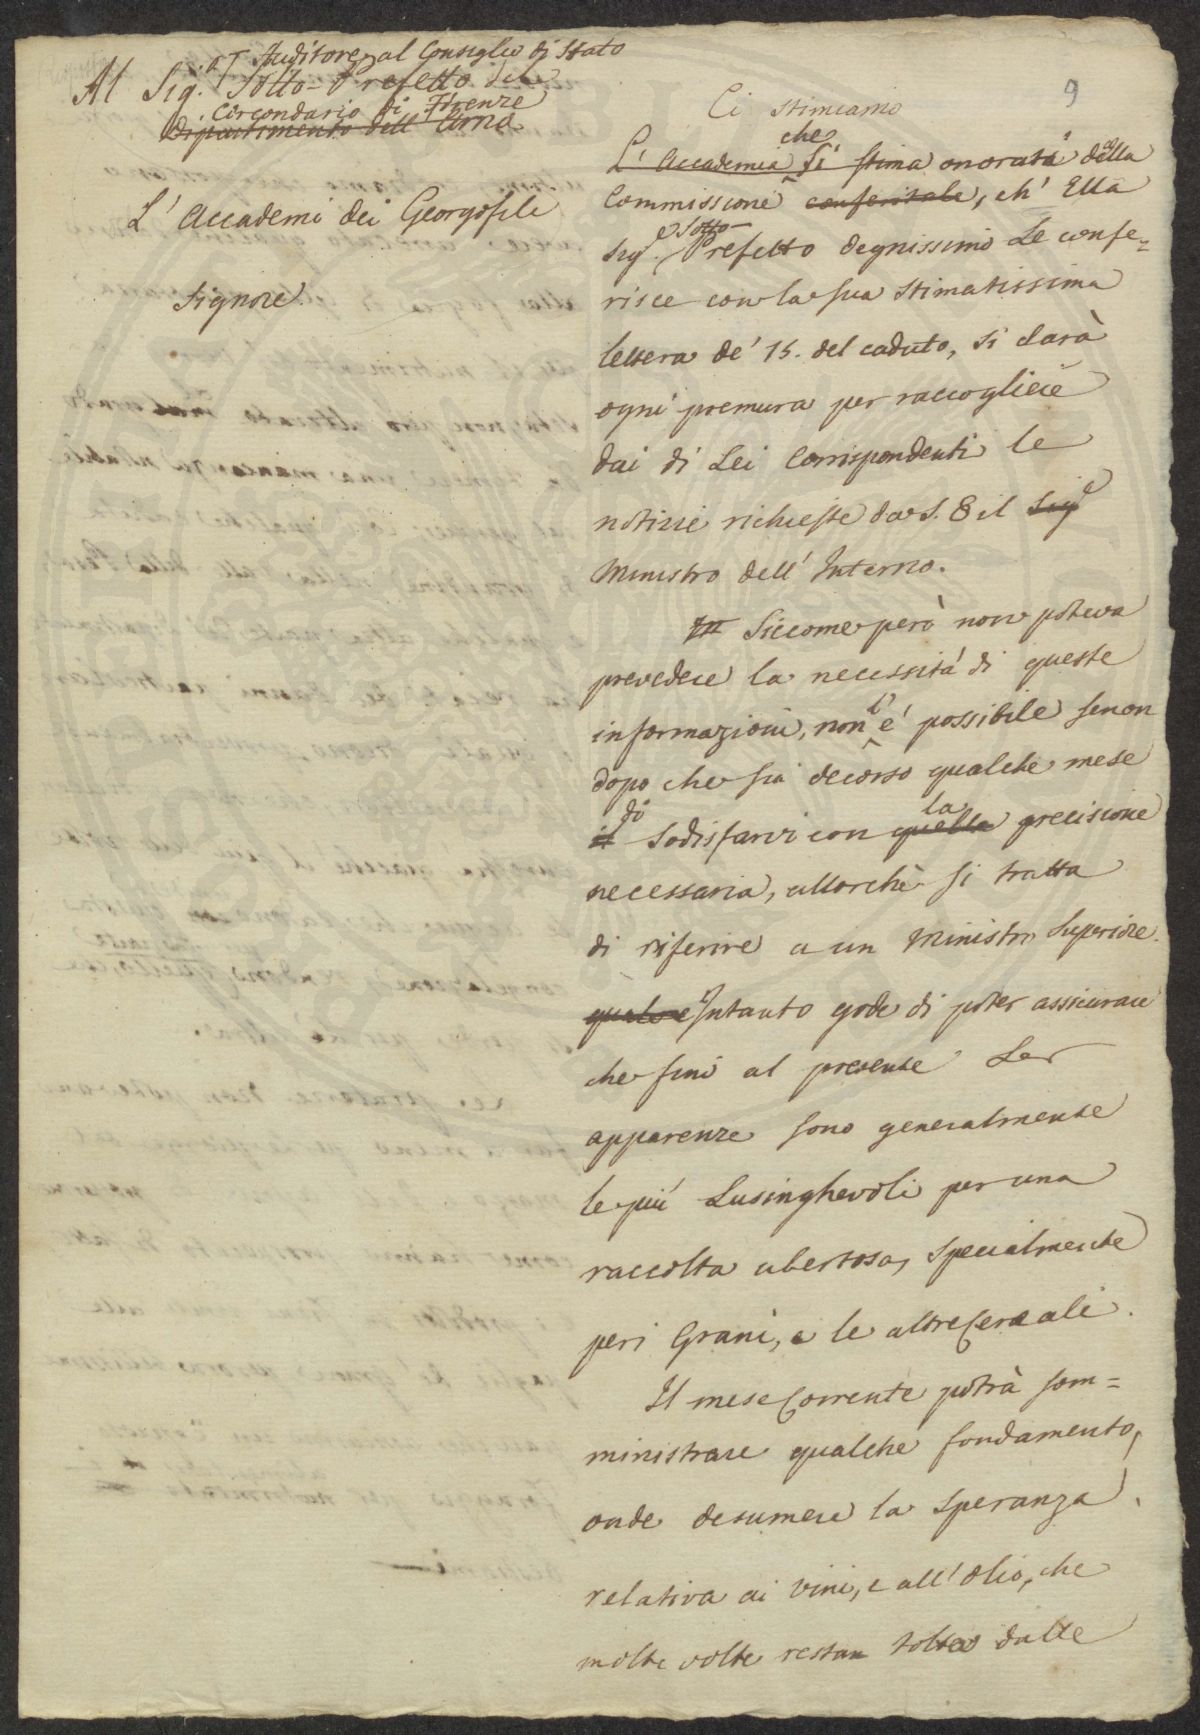 Auditore al Consiglio di Stato
Al Sig.r Sotto-Prefetto del
Circondario di Firenze
Dipartimento dell' Arno
L' Accademi dei Georgofili
Signore
9
Ci stimiamo
che
L' Accademia si stima onorata della
Commissione conferitale, ch' Ella
Sotto-
Sig.e Prefetto degnissimo Le confe=
risce con la sua stimatissima
lettera de' 15. del caduto, si darà
ogni premura per raccogliere
dai di Lei Corrispondenti le
notizie richieste da S. E il Sig.e
Ministro dell' Interno.
Siccome però non poteva
prevedere la necessità di queste
informazioni, non è possibile senon
dopo che sia decorso qualche mese
di la
il sodisfarvi con quella precisione
necessaria, allorchè si tratta
di riferire a un Ministro Superiore.
Intanto gode di poter assicurare
che fino al presente Le
apparenze sono generalmente
le più Lusinghevoli per una
raccolta ubertosa, specialmente
peri Grani, e le altre Cereali.
Il mese Corrente potrà som=
ministrare qualche fondamento,
onde desumere la speranza
relativa ai vini, e all' Olio, che
molte volte restan tolte dalle